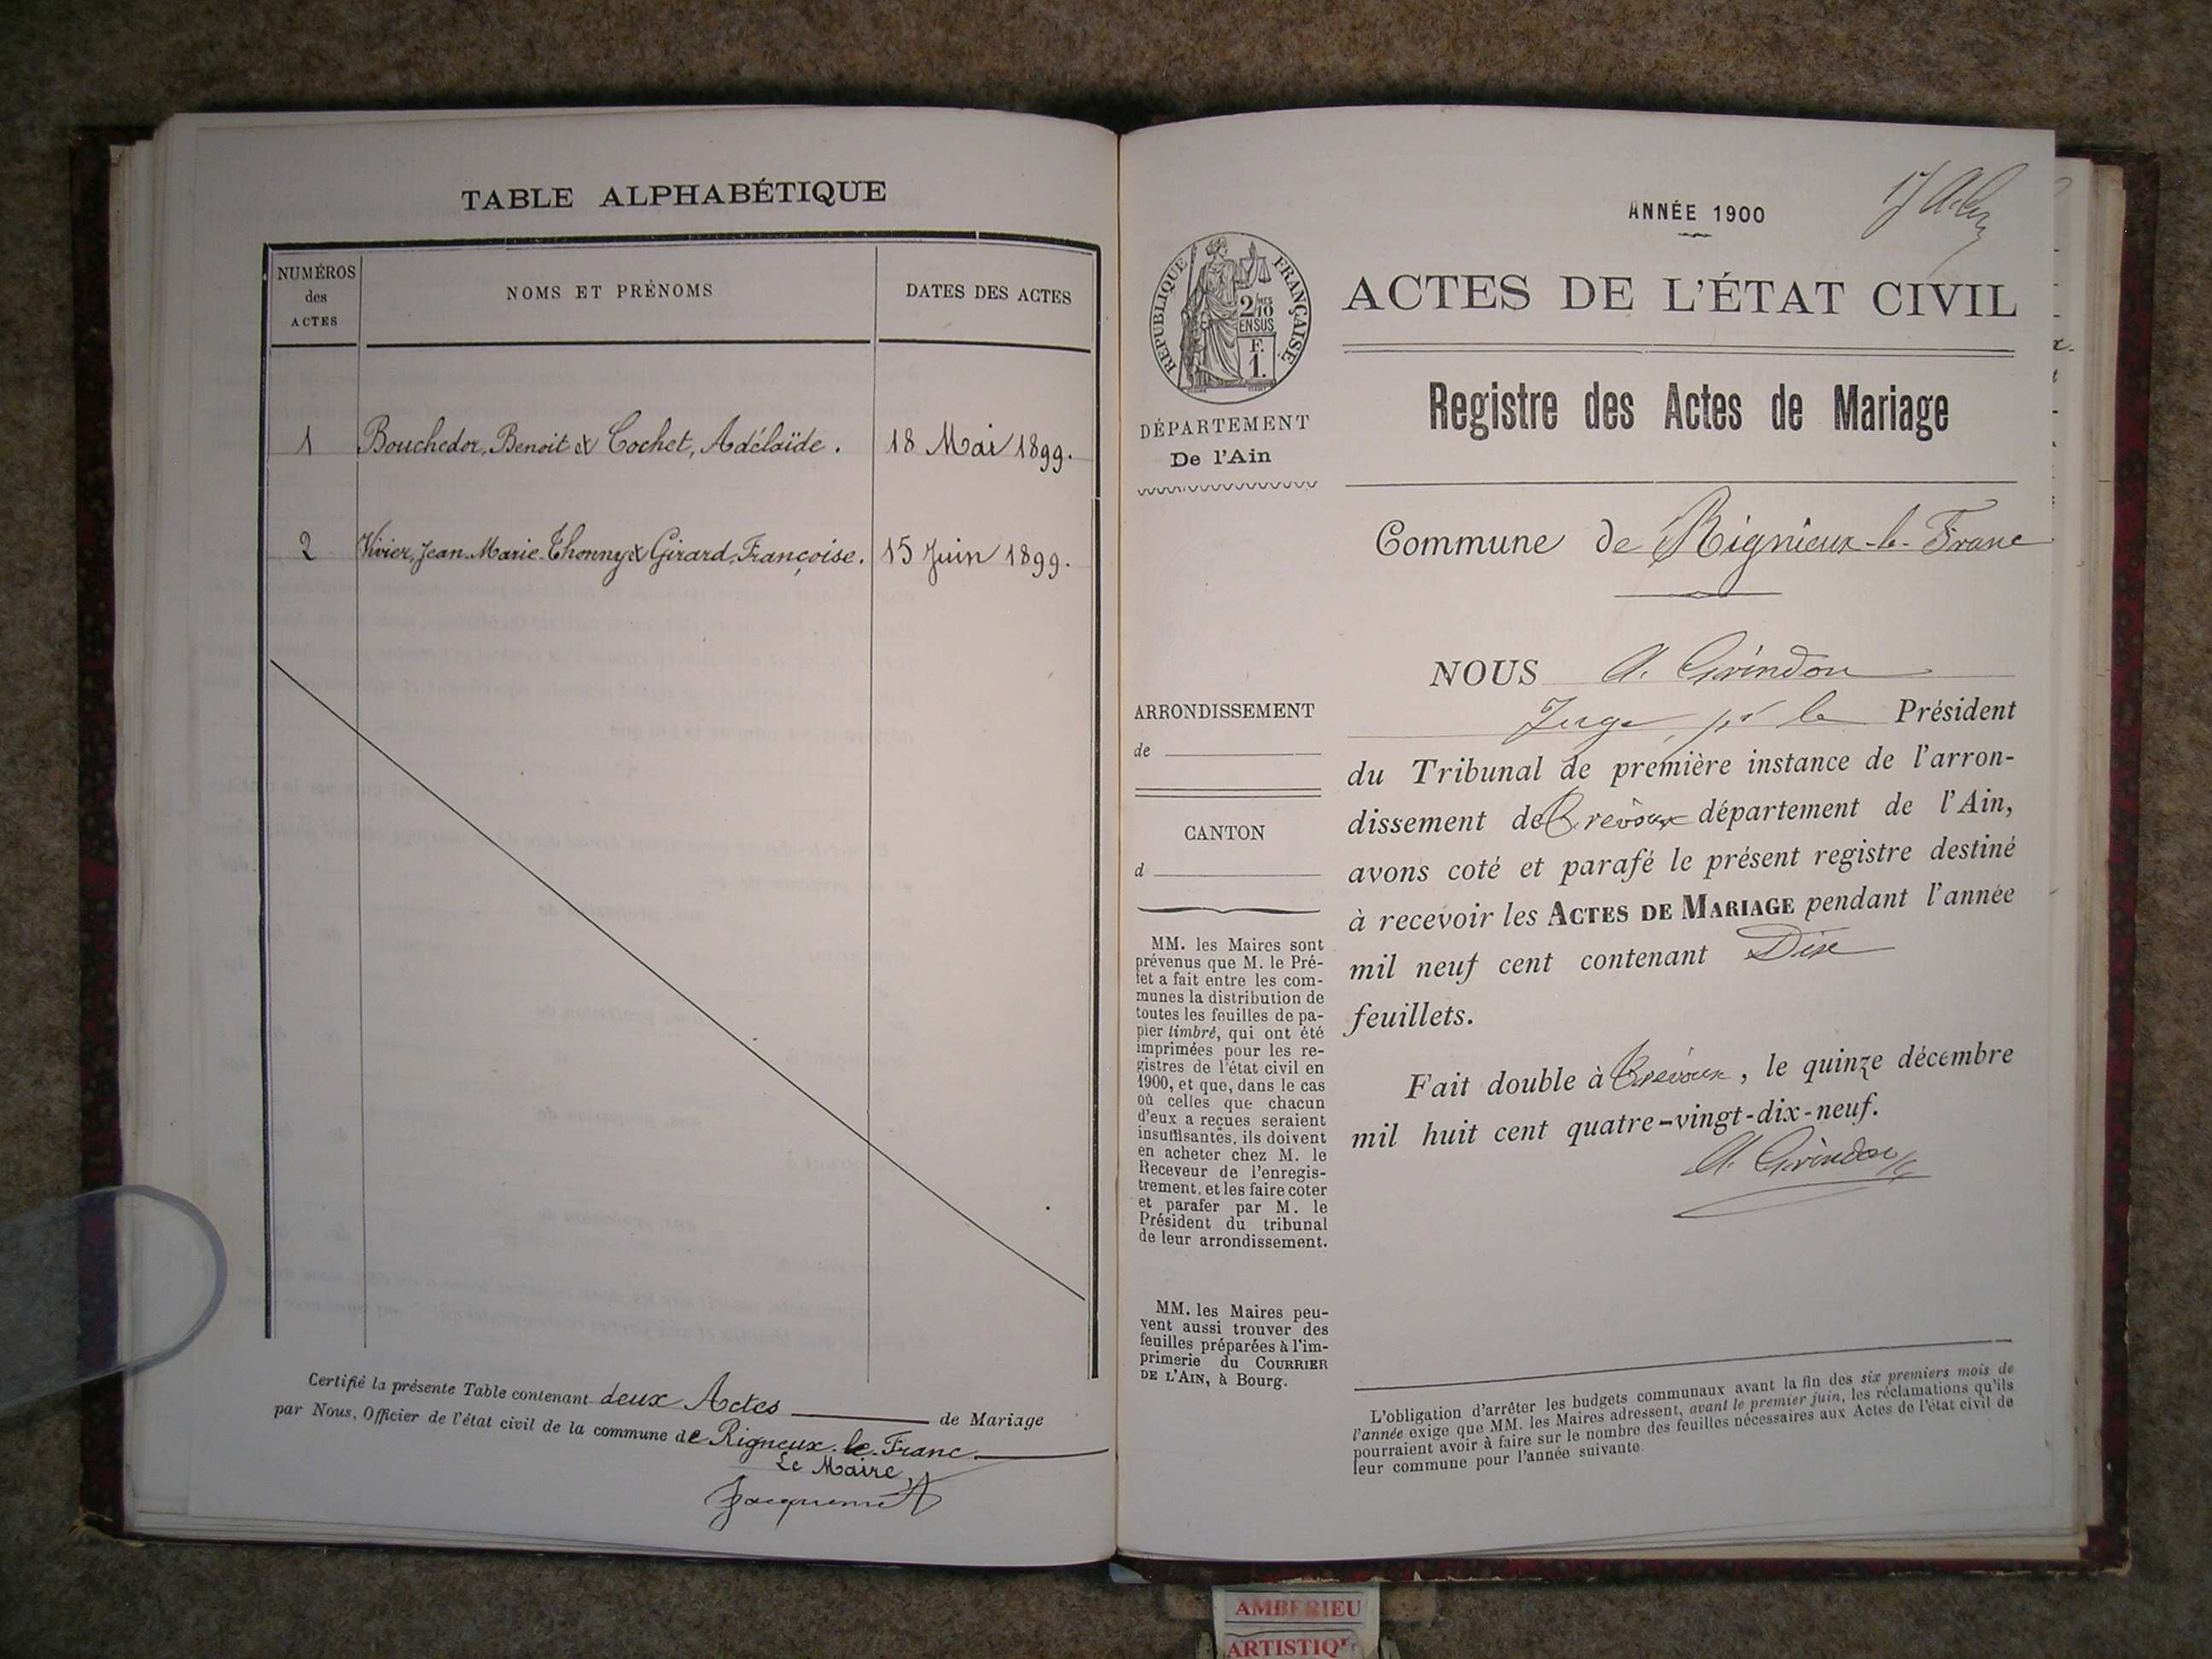 TABLE ALPHABÉTIQUE
NUMÉROS
des
ACTES
NOMS ET PRÉNOMS
DATES DES ACTES
1 Bouchedor, Benoit et Cochet, Adélaïde. 18 Mai 1899.
2 Vivier, Jean-Marie-Thonny & Girard, Françoise. 15 Juin 1899.
Certifié la présente Table contenant deux Actes de Mariage
par Nous, Officier de l'état civil de la commune de Rigneux-le-Franc
Le Maire,
Jacquemet
ANNÉE 1900
RÉPUBLIQUE FRANÇAISE
2/10 MES
EN SUS
F.
1.
ACTES DE L'ÉTAT CIVIL
DÉPARTEMENT
De l'Ain
Registre des Actes de Mariage
Commune de Rignieux-le-Franc
ARRONDISSEMENT
de
CANTON
d
MM. les Maires sont
prévenus que M. le Pré-
fet a fait entre les com-
munes la distribution de
toutes les feuilles de pa-
pier timbré, qui ont été
imprimées pour les re-
gistres de l'état civil en
1900, et que, dans le cas
où celles que chacun
d'eux a reçues seraient
insuffisantes, ils doivent
en acheter chez M. le
Receveur de l'enregis-
trement, et les faire coter
et parafer par M. le
Président du tribunal
de leur arrondissement.
MM. les Maires peu-
vent aussi trouver des
feuilles préparées à l'im-
primerie du COURRIER
DE L'AIN, à Bourg.
NOUS A. Grindon
Juge, pr le Président
du Tribunal de première instance de l'arron-
dissement de Trévoux département de l'Ain,
avons coté et parafé le présent registre destiné
à recevoir les ACTES DE MARIAGE pendant l'année
mil neuf cent contenant Dix
feuillets.
Fait double à Trévoux, le quinze décembre
mil huit cent quatre-vingt-dix-neuf.
A. Grindon
L'obligation d'arrêter les budgets communaux avant la fin des six premiers mois de
l'année exige que MM. les Maires adressent, avant le premier juin, les réclamations qu'ils
pourraient avoir à faire sur le nombre des feuilles nécessaires aux Actes de l'état civil de
leur commune pour l'année suivante.
AMBERIEU
ARTISTIQUE